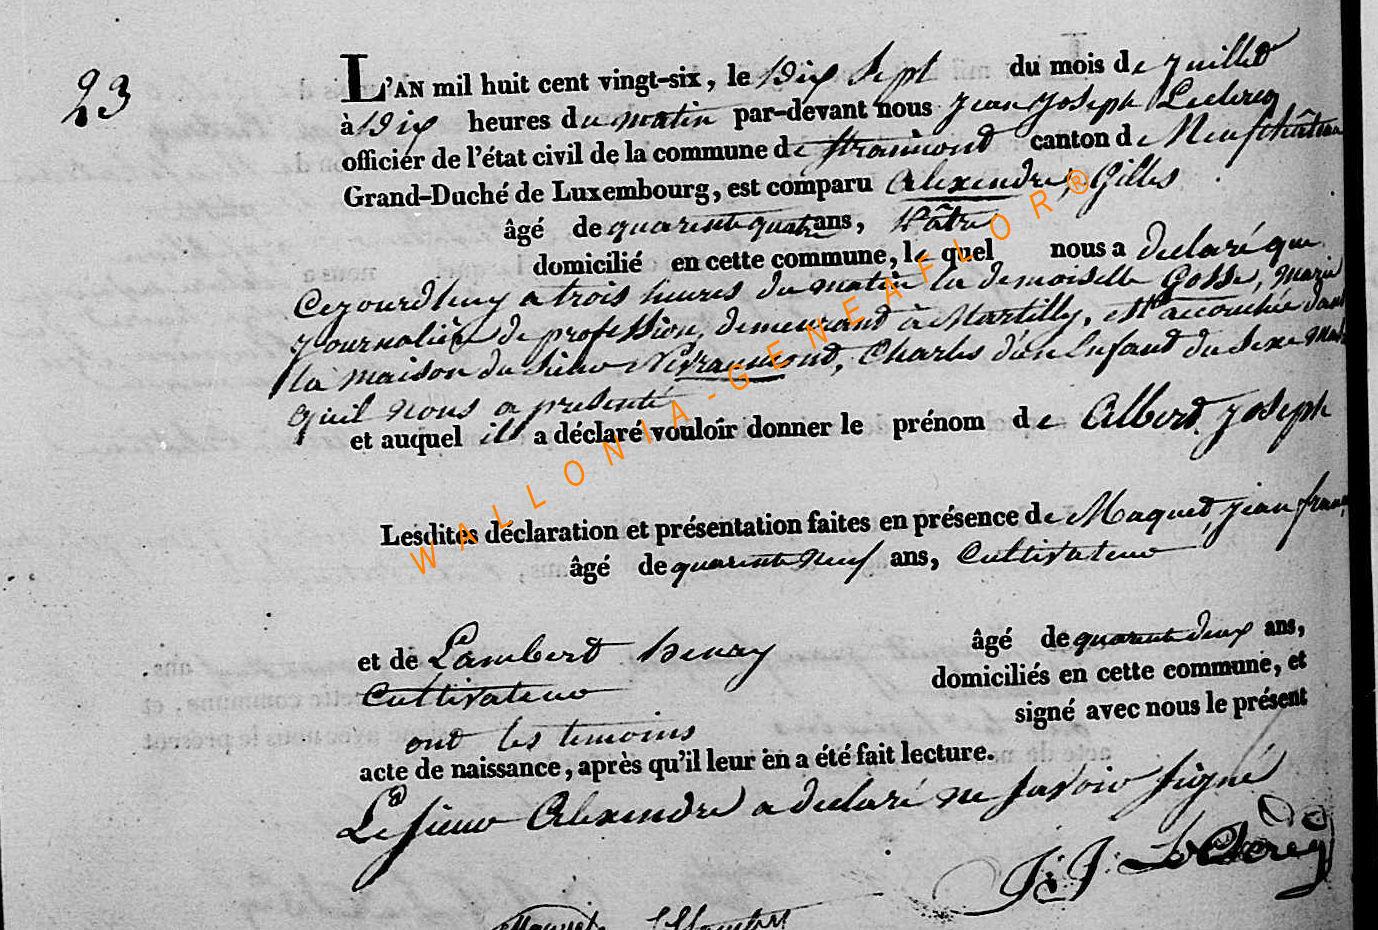 23
L'AN mil huit cent vingt-six, le dix Sept du mois de juillet
à dix heures du matin par-devant nous jean joseph Leclercq
officier de l'état civil de la commune de Straimond canton de Neufchâteau
Grand-Duché de Luxembourg, est comparu Alexendre, Gilles
âgé de quarente quatre ans, Pâtre
domicilié en cette commune, le quel nous a déclaré que
Cejourdhuy a trois heures du matin la demoiselle Gosse, Marie
journalière de profession, demeurand à Martilly, est accouchée dans
la maison du Sieur Charles d'un Enfant du Sexe
qu'il nous a présenté
et auquel il a déclaré vouloir donner le prénom de Albert joseph
Lesdites déclaration et présentation faites en présence de Maquet, jean
âgé de quarente neuf ans, Cultivateur
et de Lambert henry âgé de quarente deux ans,
Cultivateur domiciliés en cette commune, et
ont les temoins signé avec nous le présent
acte de naissance, après qu'il leur en a été fait lecture.
Le sieur Alexendre a déclaré ne savoir signé
J: J. LeClercq
Maquet
WALLONIA-GENEAFLOR®